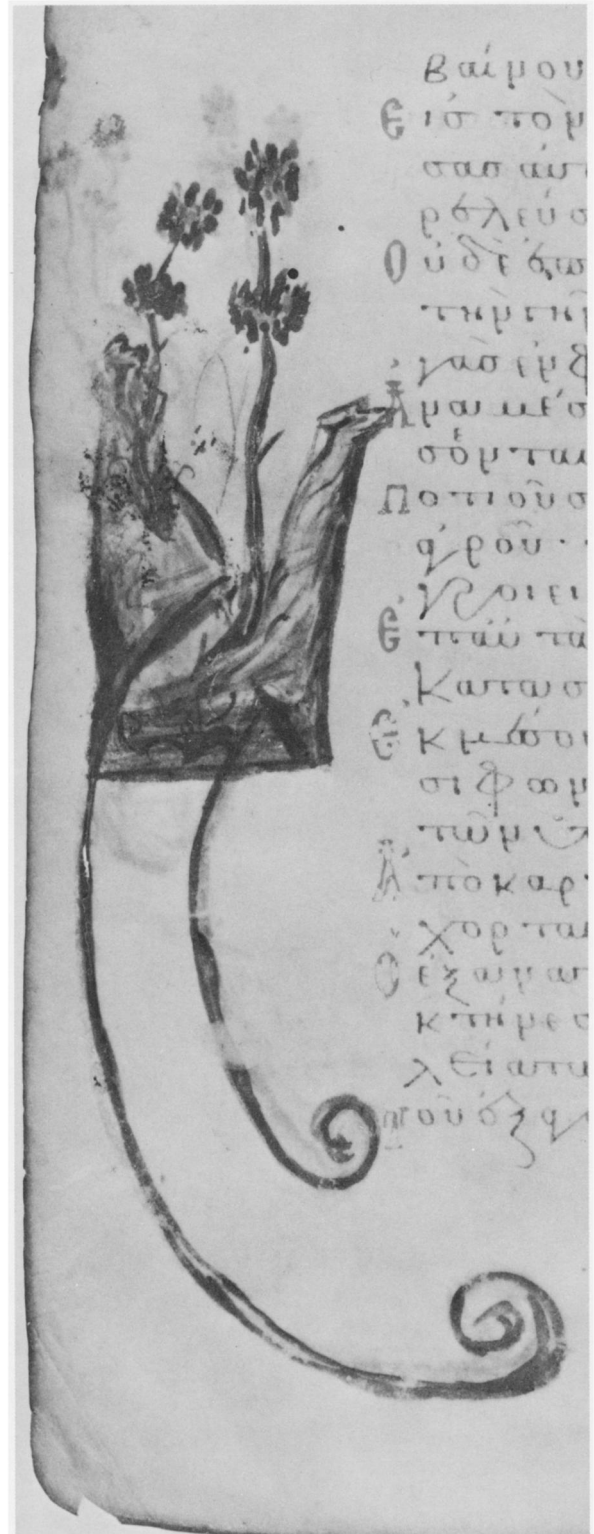 βαίνου
Εἰς τὸν
σας αὐτ
ρελεύσ
Οὐδὲ
τὴν γῆ
γὰς ἐν φ
Ἀναμέσ
σον τῶ
Ποτιοῦσ
ἀγροῦ·
γροι εἰ
Ἐπ αὐτὰ
κατασ
Ἐκ
σι φων
τῶν
Ἀπὸ καρ
χορτα
Ὁ ἐξανα
κτήνεσ
λείᾳ τ
Τοῦ ἐξαγ